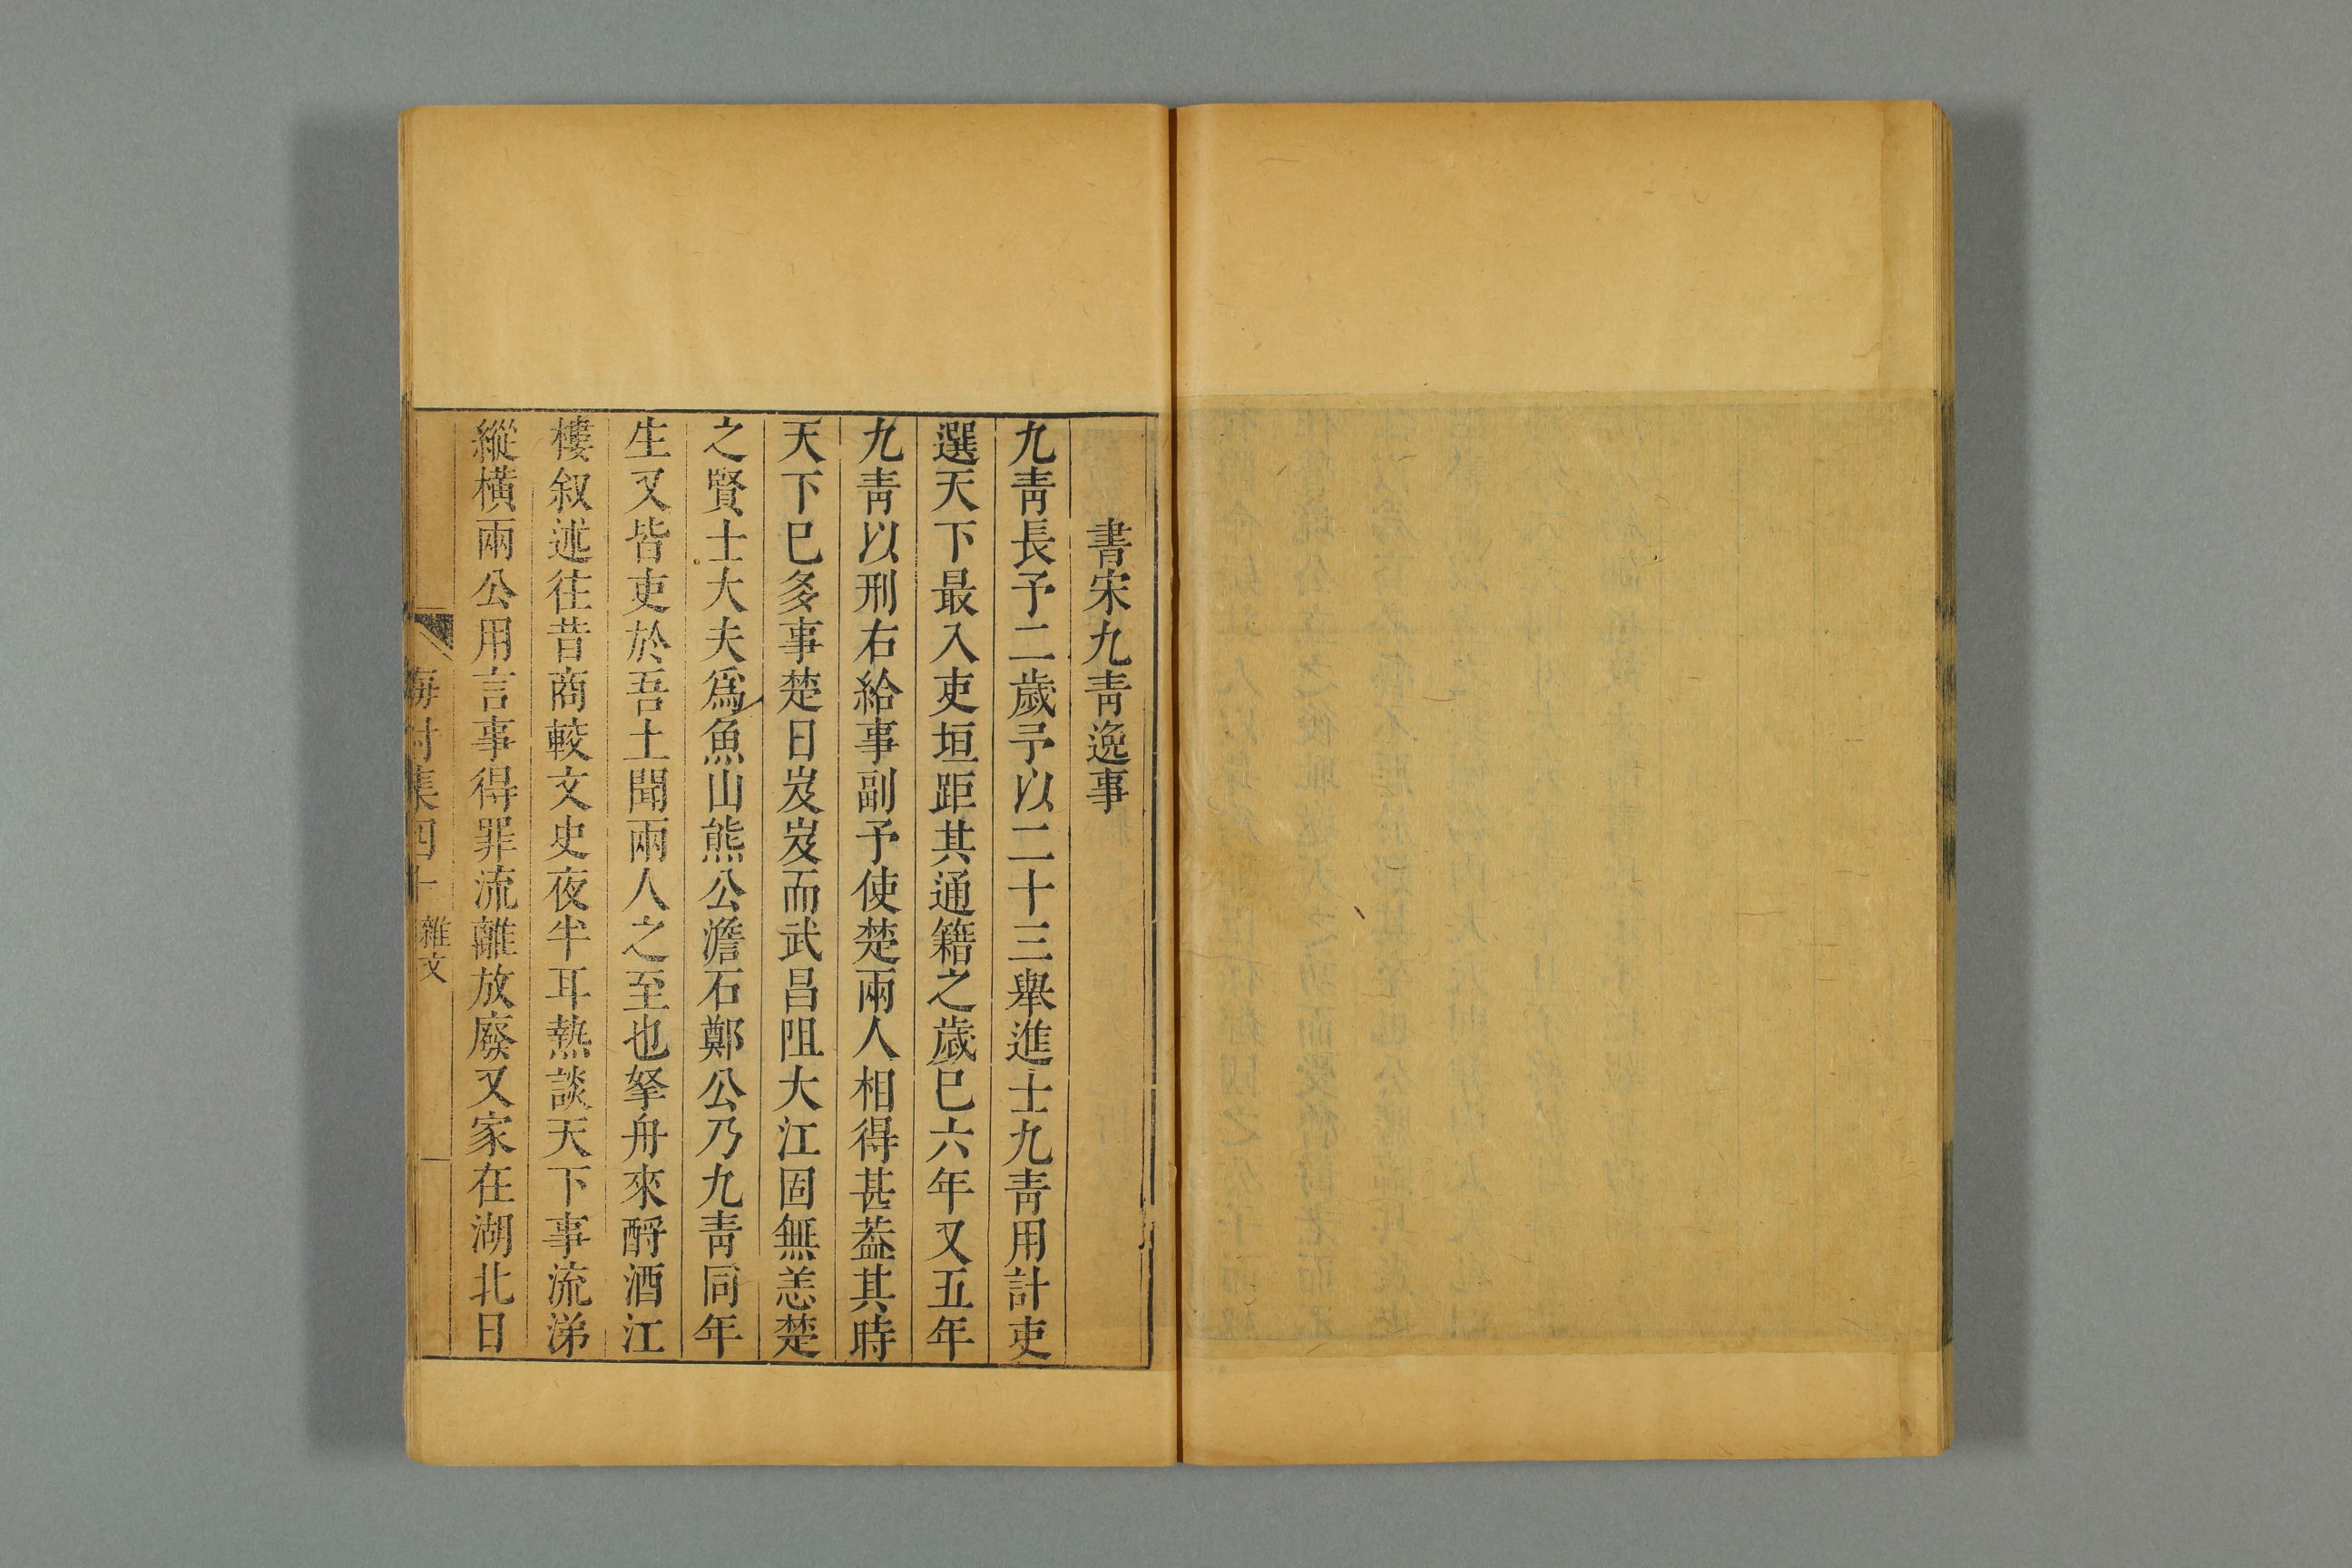 書宋九靑逸事
九靑長予二歲予以二十三舉進士九靑用計吏
選天下最入吏垣距其通籍之歲巳六年又五年
九靑以刑右給事副予使楚兩人相得甚葢其時
天下巳多事楚日岌岌而武昌阻大江固無恙楚
之賢士大夫爲魚山熊公澹石鄭公乃九靑同年
生又皆吏於吾土聞兩人之至也拏舟來酹酒江
樓叙述往昔商較文史夜半耳熱談天下事流涕
縱橫兩公用言事得罪流離放廢又家在湖北日
梅村集四十 雜文 一